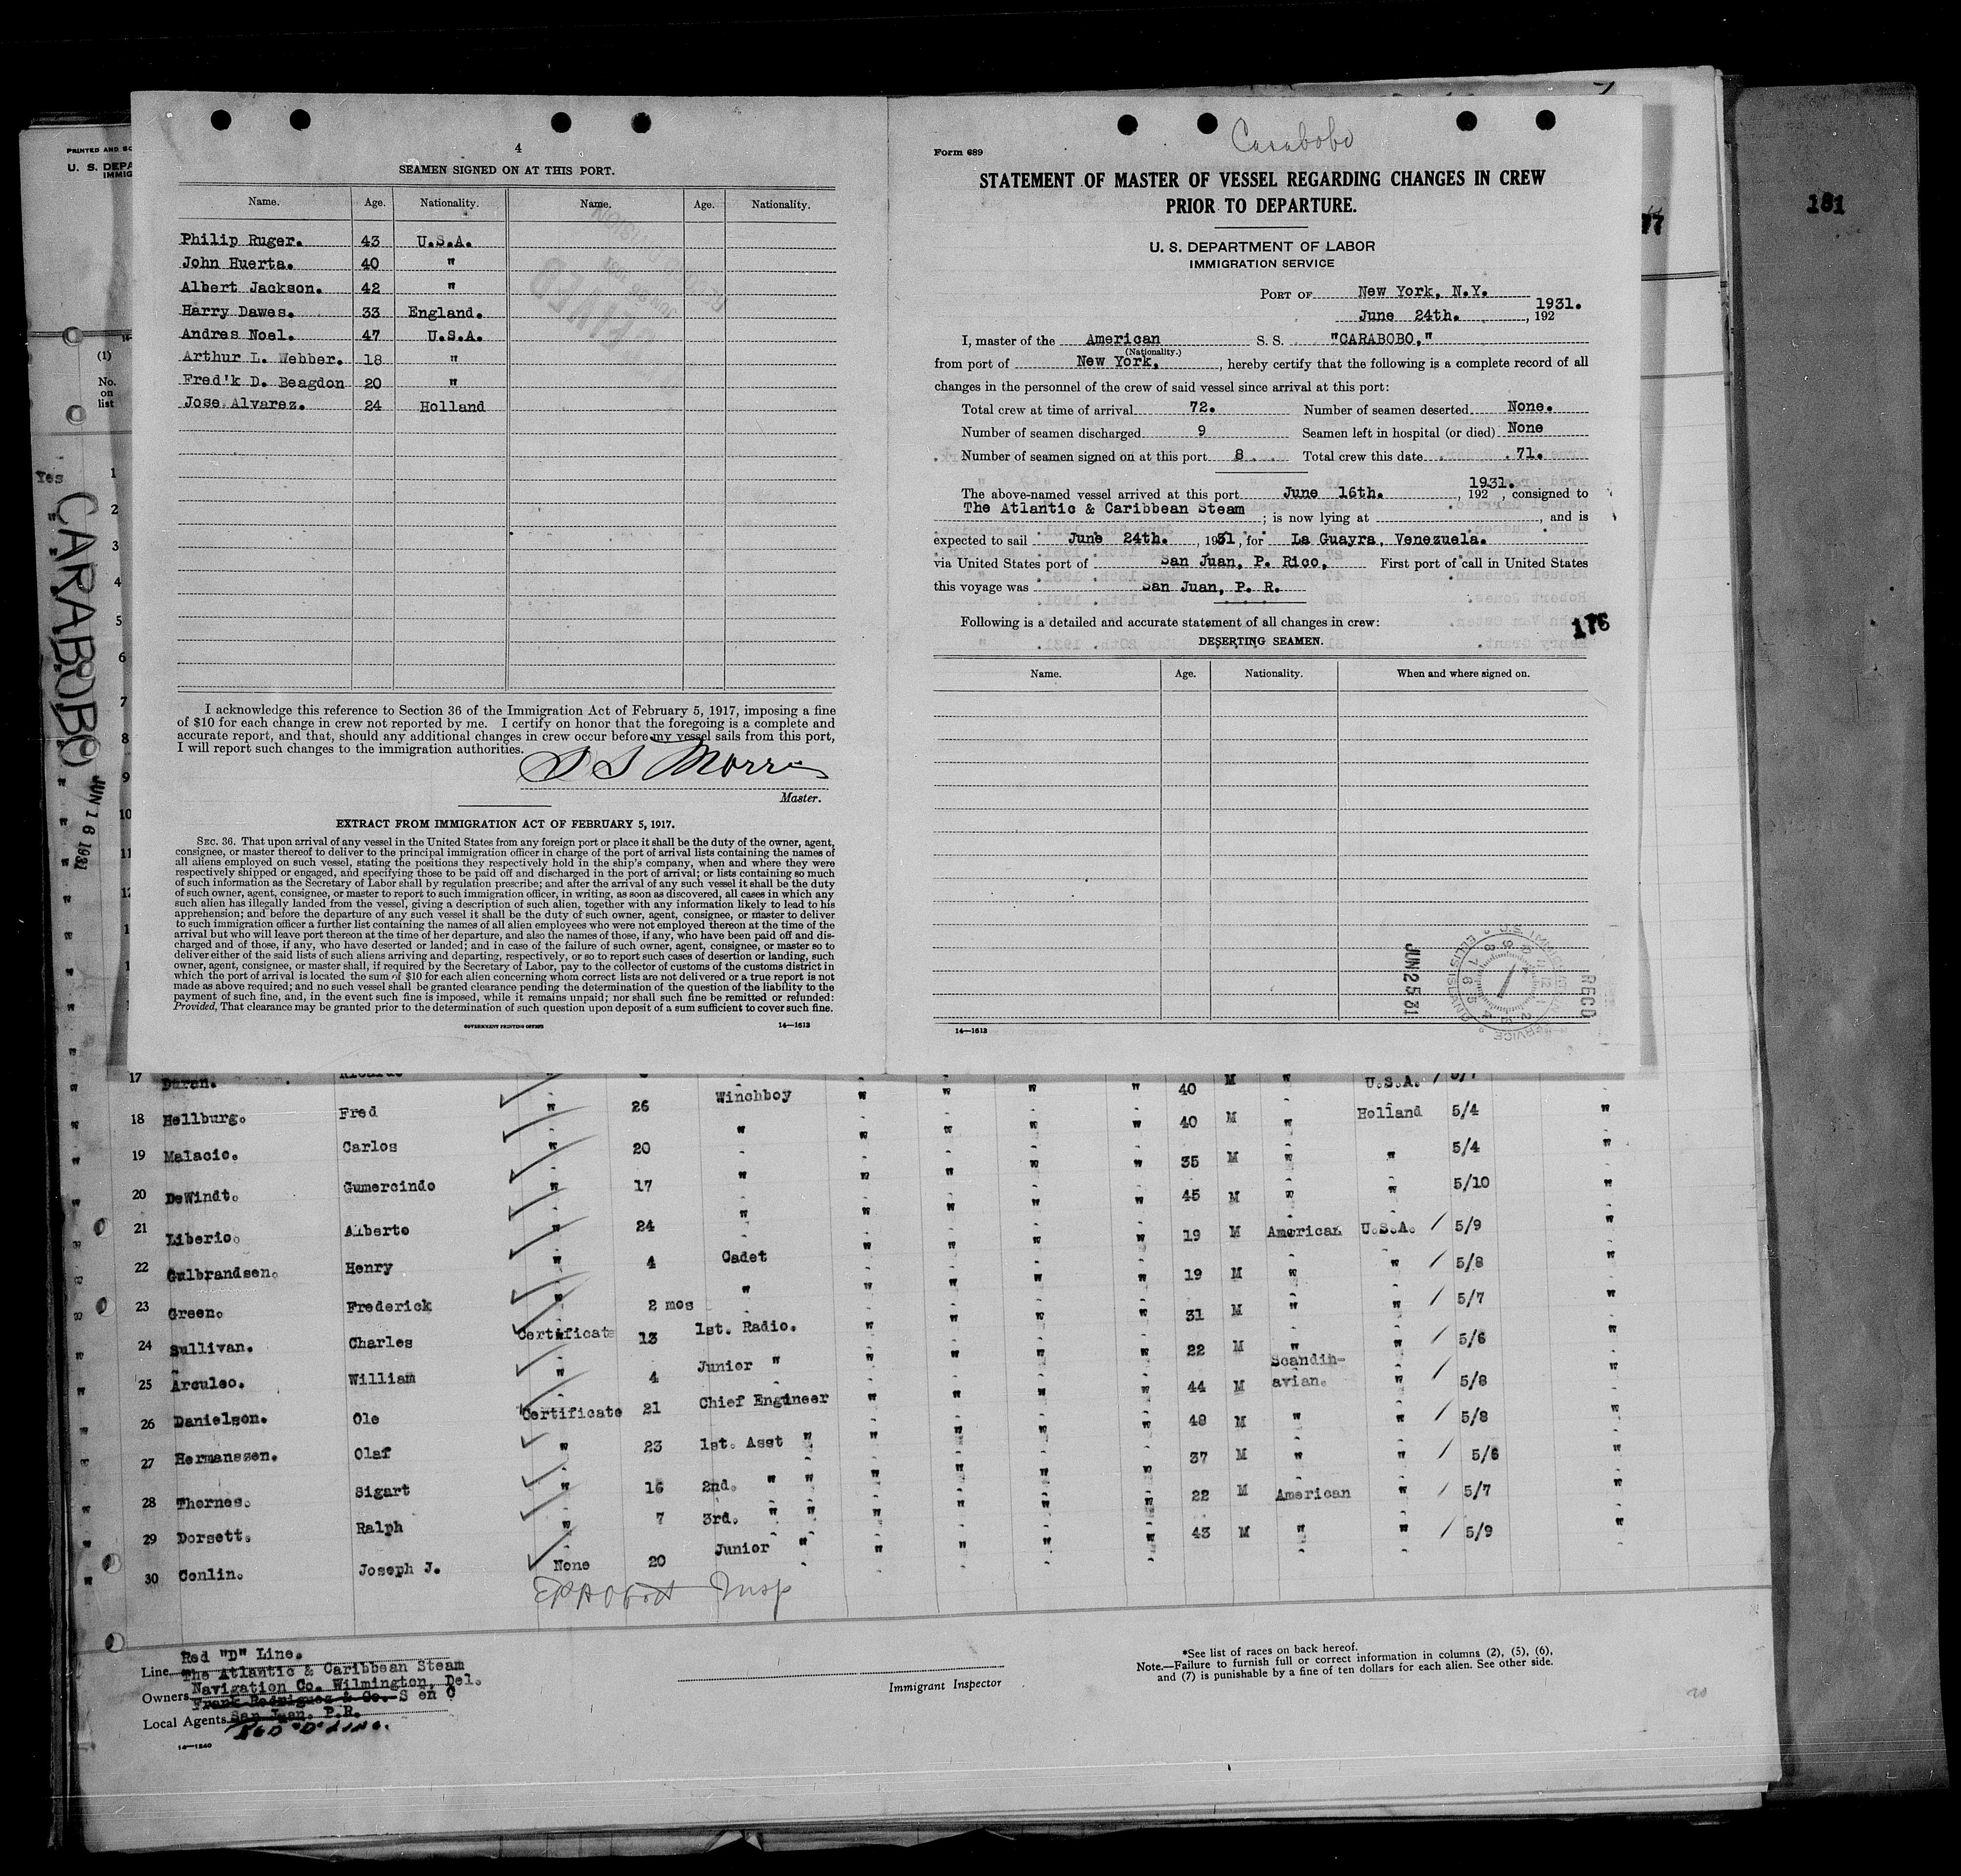 PRINTED AND
U. S. DEPA
IMMIG
(1)
No.
on
list
Yes
CARABOBO
JUN 16 1931
1
2
3
4
5
6
7
8
9
10
11
4
SEAMEN SIGNED ON AT THIS PORT.
Name. Age. Nationality. Name. Age. Nationality.
Philip Ruger. 43 U.S.A.
John Huerta. 40 "
Albert Jackson. 42 "
Harry Dawes. 33 England.
Andres Noel. 47 U.S.A.
Arthur L. Webber. 18 "
Fred'k D. Beagdon 20 "
Jose Alvarez. 24 Holland
I acknowledge this reference to Section 36 of the Immigration Act of February 5, 1917, imposing a fine
of $10 for each change in crew not reported by me. I certify on honor that the foregoing is a complete and
accurate report, and that, should any additional changes in crew occur before my vessel sails from this port,
I will report such changes to the immigration authorities.
Morris
Master.
EXTRACT FROM IMMIGRATION ACT OF FEBRUARY 5, 1917.
SEC. 36. That upon arrival of any vessel in the United States from any foreign port or place it shall be the duty of the owner, agent,
consignee, or master thereof to deliver to the principal immigration officer in charge of the port of arrival lists containing the names of
all aliens employed on such vessel, stating the positions they respectively hold in the ship's company, when and where they were
respectively shipped or engaged, and specifying those to be paid off and discharged in the port of arrival; or lists containing so much
of such information as the Secretary of Labor shall by regulation prescribe; and after the arrival of any such vessel it shall be the duty
of such owner, agent, consignee, or master to report to such immigration officer, in writing, as soon as discovered, all cases in which any
such alien has illegally landed from the vessel, giving a description of such alien, together with any information likely to lead to his
apprehension; and before the departure of any such vessel it shall be the duty of such owner, agent, consignee, or master to deliver
to such immigration officer a further list containing the names of all alien employees who were not employed thereon at the time of the
arrival but who will leave port thereon at the time of her departure, and also the names of those, if any, who have been paid off and dis-
charged and of those, if any, who have deserted or landed; and in case of the failure of such owner, agent, consignee, or master so to
deliver either of the said lists of such aliens arriving and departing, respectively, or so to report such cases of desertion or landing, such
owner, agent, consignee, or master shall, if required by the Secretary of Labor, pay to the collector of customs of the customs district in
which the port of arrival is located the sum of $10 for each alien concerning whom correct lists are not delivered or a true report is not
made as above required; and no such vessel shall be granted clearance pending the determination of the question of the liability to the
payment of such fine, and, in the event such fine is imposed, while it remains unpaid; nor shall such fine be remitted or refunded:
Provided, That clearance may be granted prior to the determination of such question upon deposit of a sum sufficient to cover such fine.
GOVERNMENT PRINTING OFFICE 14—1613
Carabobo
Form 689
STATEMENT OF MASTER OF VESSEL REGARDING CHANGES IN CREW
PRIOR TO DEPARTURE.
U. S. DEPARTMENT OF LABOR
IMMIGRATION SERVICE
PORT OF New York, N.Y.
June 24th. , 192 1931.
I, master of the American S. S. "CARABOBO,"
(Nationality.)
from port of New York, , hereby certify that the following is a complete record of all
changes in the personnel of the crew of said vessel since arrival at this port:
Total crew at time of arrival 72. Number of seamen deserted None.
Number of seamen discharged 9 Seamen left in hospital (or died) None
Number of seamen signed on at this port 8 Total crew this date 71.
The above-named vessel arrived at this port June 16th. , 192 1931. , consigned to
The Atlantic & Caribbean Steam ; is now lying at , and is
expected to sail June 24th. , 1931, for La Guayra, Venezuela.
via United States port of San Juan, P. Rico, First port of call in United States
this voyage was San Juan, P. R.
Following is a detailed and accurate statement of all changes in crew:
176
DESERTING SEAMEN.
Name. Age. Nationality. When and where signed on.
JUN 25 31
RECD
ELLIS ISLAND
14—1613
181
17 Duran. Ricardo 40 M " U.S.A. / 5/7
18 Hellburg. Fred " 26 Winchboy " " " " 40 M " Holland 5/4 "
19 Malacio. Carlos " 20 " " " " " 35 M " " 5/4 "
20 DeWindt. Gumercindo " 17 " " " " " 45 M " " 5/10 "
21 Liberio. Alberto " 24 " " " " " 19 M American U.S.A. / 5/9 "
22 Gulbrandsen. Henry " 4 Cadet " " " " 19 M " " / 5/8 "
23 Green. Frederick " 2 mos " " " " " 31 M " " / 5/7 "
24 Sullivan. Charles Certificate 13 1st. Radio. " " " " 22 M " " / 5/6 "
25 Arculeo. William " 4 Junior " " " " " 44 M Scandin-avian. " / 5/8 "
26 Danielson. Ole Certificate 21 Chief Engineer " " " " 48 M " " / 5/8 "
27 Hermanssen. Olaf " 23 1st. Asst " " " " " 37 M " " / 5/6 "
28 Thornes. Sigart " 16 2nd. " " " " " " 22 M American " / 5/7 "
29 Dorsett. Ralph " 7 3rd. " " " " " " 43 M " " / 5/9 "
30 Conlin. Joseph J. None 20 Junior " " " "
Insp
Line Red "D" Line.
The Atlantic & Caribbean Steam
Owners Navigation Co. Wilmington, Del.
Frank Rodriguez & Co. S en C
Local Agents San Juan. P.R.
RED "D" LINE.
14—1240
Immigrant Inspector
*See list of races on back hereof.
Note.—Failure to furnish full or correct information in columns (2), (5), (6),
and (7) is punishable by a fine of ten dollars for each alien. See other side.